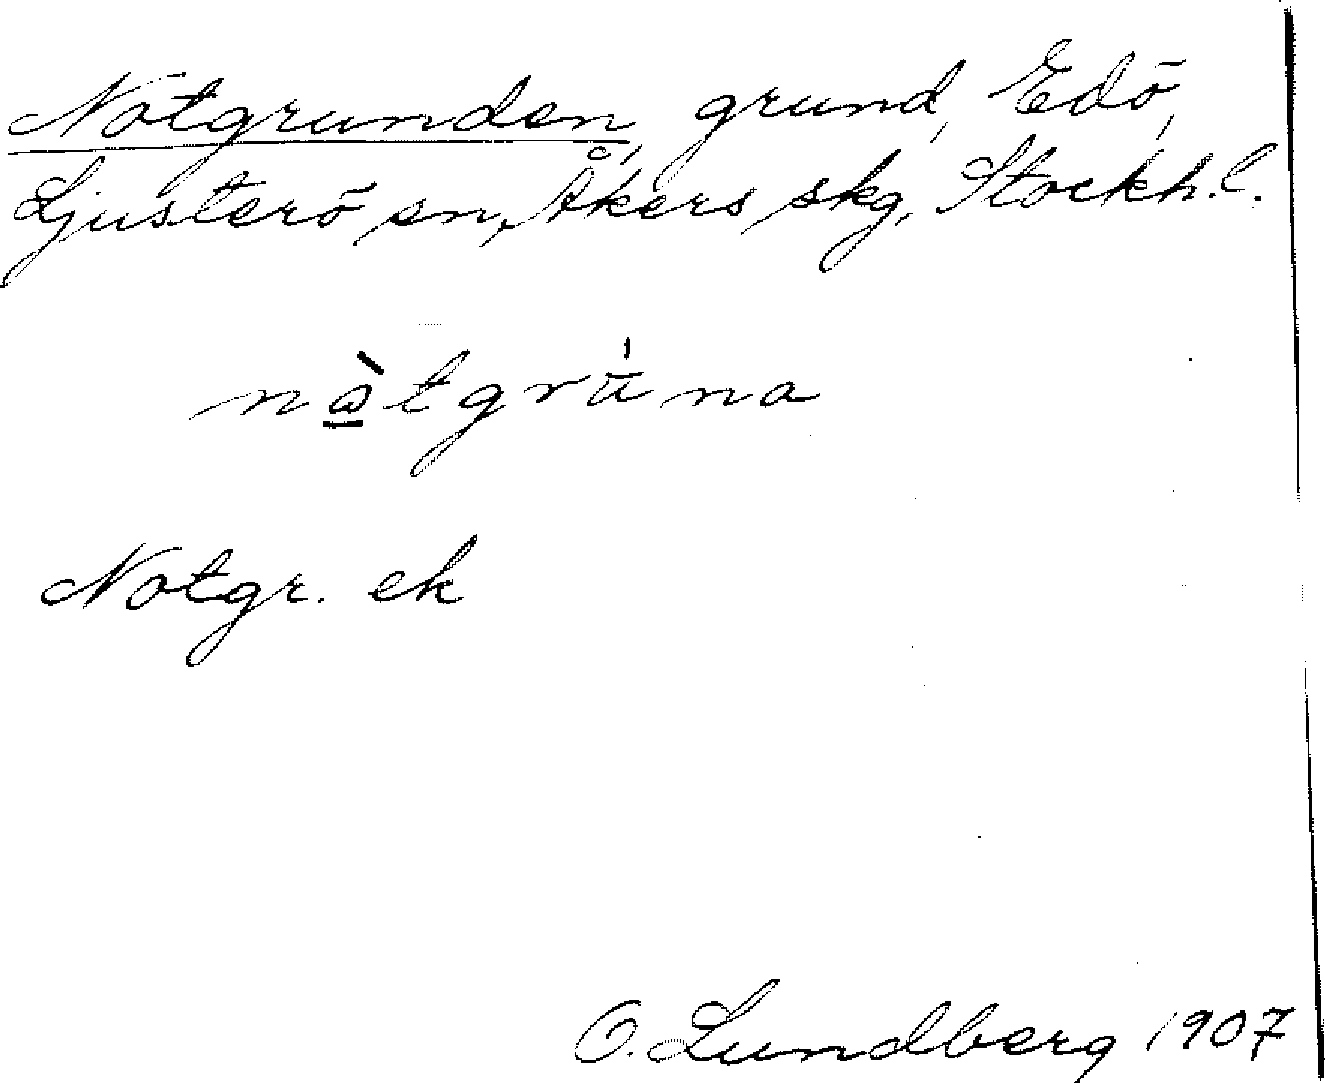 Notgrunden, grund, Edö,
Ljusterö sn, Åkers skg, Stockh. l.
nòtgrúna
Notgr. ek
O. Lundberg 1907